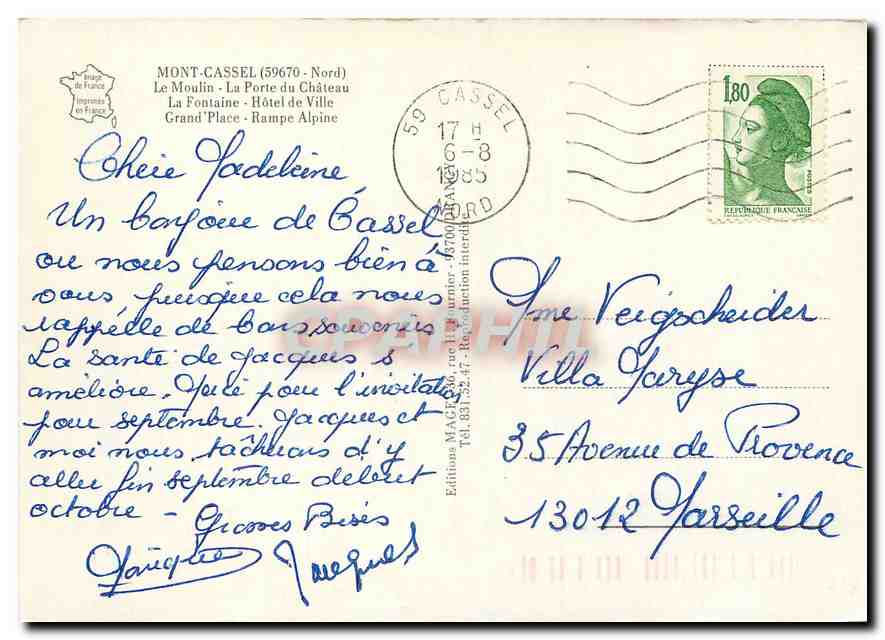 Image
de France
Imprimée
en France
MONT-CASSEL (59670 - Nord)
Le Moulin - La Porte du Château
La Fontaine - Hôtel de Ville
Grand'Place - Rampe Alpine
59 CASSEL
17 H
6-8
1985
NORD
1,80
POSTES
REPUBLIQUE FRANÇAISE
Chère Madeleine
Un bonjour de Cassel
ou nous pensons bien à
vous puisque cela nous
rappelle de bons souvenirs
La santé de Jacques s
améliore. Merci pour l'invitation
pour septembre. Jacques et
moi nous tâcherons d'y
aller fin septembre debut
octobre - Grosses Bises
Jacques
Editions MAGE, rue H. Fournier - 93700 DRANCY
Tél. 831.52.47 - Reproduction interdite
CPAPHIL
Mme Veigscheider
Villa Maryse
35 Avenue de Provence
13012 Marseille